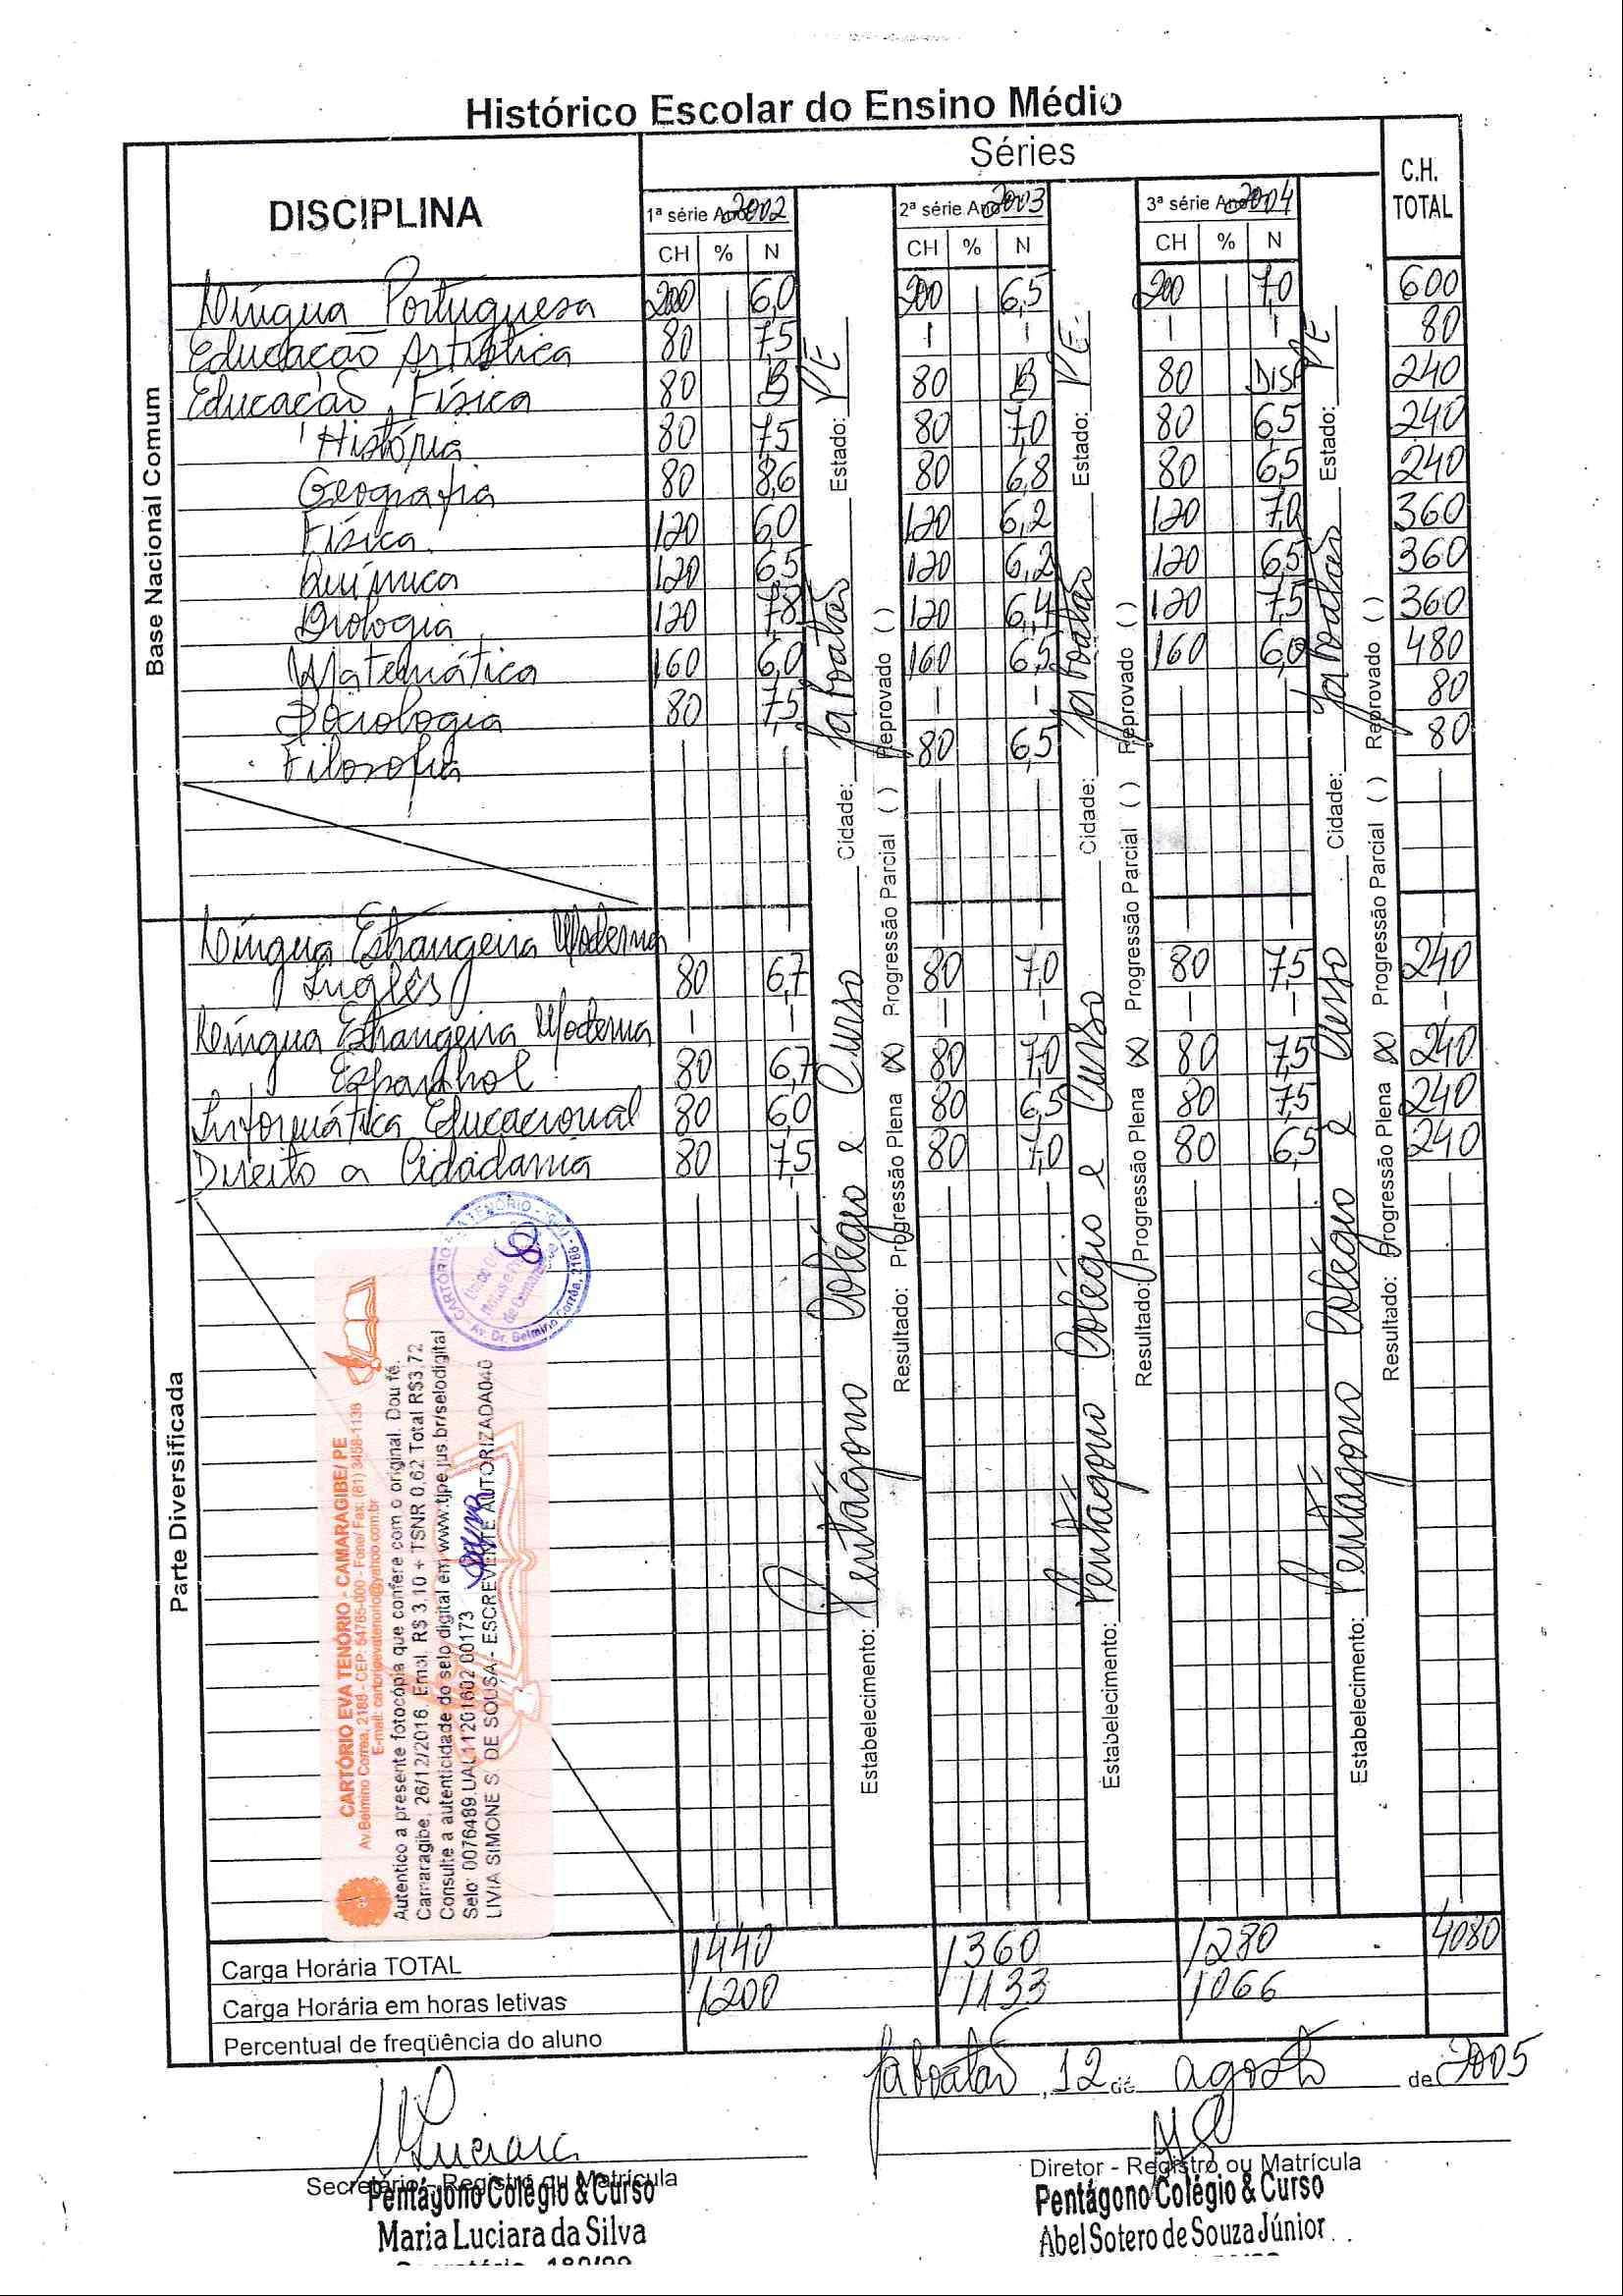 Histórico Escolar do Ensino Médio
DISCIPLINA
Séries
C.H. TOTAL
1ª série Ano 2002
2ª série Ano 2003
3ª série Ano 2004
CH % N CH % N CH % N
Base Nacional Comum
Língua Portuguesa 200 6,0 200 6,5 200 7,0 600
Educação Artística 80 7,5 - - - - 80
Educação Física 80 B 80 B 80 DISP 240
História 80 7,5 80 7,0 80 6,5 240
Geografia 80 8,6 80 6,8 80 6,5 240
Física 120 6,0 120 6,2 120 7,0 360
Química 120 6,5 120 6,2 120 6,5 360
Biologia 120 7,8 120 6,4 120 7,5 360
Matemática 160 6,0 160 6,5 160 6,0 480
Sociologia 80 7,5 - - 80
Filosofia 80 6,5 80
Parte Diversificada
Língua Estrangeira Moderna
Inglês 80 6,7 80 7,0 80 7,5 240
Língua Estrangeira Moderna - - - - - - -
Espanhol 80 6,7 80 7,0 80 7,5 240
Informática Educacional 80 6,0 80 6,5 80 7,5 240
Direito a Cidadania 80 7,5 80 7,0 80 6,5 240
Estabelecimento: Pentágono Colégio e Curso Cidade: Jaboatão Estado: PE
Resultado: Progressão Plena (X) Progressão Parcial ( ) Reprovado ( )
Estabelecimento: Pentágono Colégio e Curso Cidade: Jaboatão Estado: PE.
Resultado: Progressão Plena (X) Progressão Parcial ( ) Reprovado ( )
Estabelecimento: Pentágono Colégio e Curso Cidade: Jaboatão Estado: PE
Resultado: Progressão Plena (X) Progressão Parcial ( ) Reprovado ( )
CARTÓRIO EVA TENÓRIO - CAMARAGIBE/ PE
Av.Belmino Correa, 2186 - CEP: 54765-000 - Fone/ Fax: (81) 3458-1138
E-mail: cartorioevatenorio@yahoo.com.br
Autentico a presente fotocópia que confere com o original. Dou fé.
Camaragibe, 26/12/2016. Emol. R$ 3,10 + TSNR 0,62 Total R$3,72
Consulte a autenticidade do selo digital em www.tjpe.jus.br/selodigital
Selo: 0076489.UAL11201602.00173
LIVIA SIMONE S. DE SOUSA - ESCREVENTE AUTORIZADA040
Av. Dr. Belmino Corrêa, 2186
Carga Horária TOTAL 1440 1360 1280 4080
Carga Horária em horas letivas 1200 1133 1066
Percentual de freqüência do aluno
Jaboatão, 12 de agosto de 2005
Luciara
Secretário - Registro ou Matrícula
Pentágono Colégio & Curso
Maria Luciara da Silva
Diretor - Registro ou Matrícula
Pentágono Colégio & Curso
Abel Sotero de Souza Júnior